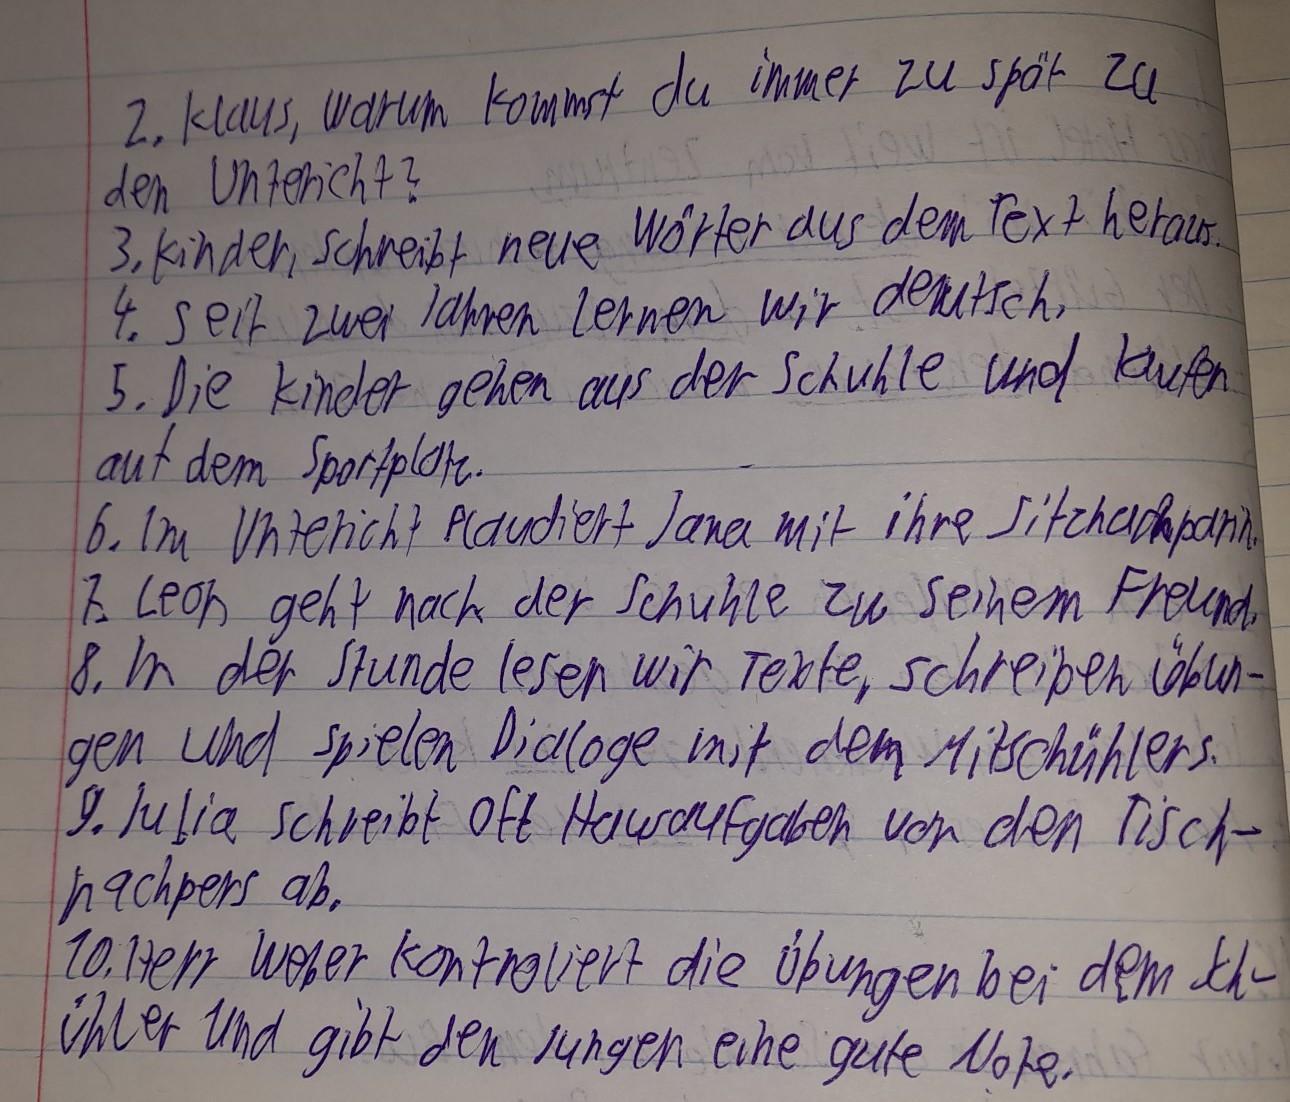 2. Klaus, warum kommst du immer zu spät zu
den Untericht?
3. Kinder, schreibt neue Wörter aus dem Text heraus.
4. Seit zwei Jahren lernen wir deutsch.
5. Die Kinder gehen aus der Schuhle und laufen
auf dem Sportplatz.
6. Im Untericht plaudiert Jana mit ihre
7. Leon geht nach der Schuhle zu seinem Freund.
8. In der Stunde lesen wir Texte, schreiben Übun-
gen und spielen Dialoge mit dem Mitschühlers.
9. Julia schreibt oft Hausaufgaben von den Tisch-
nachpers ab.
10. Herr Weber kontroliert die Übungen bei dem Sch-
ühler und gibt den Jungen eine gute Note.